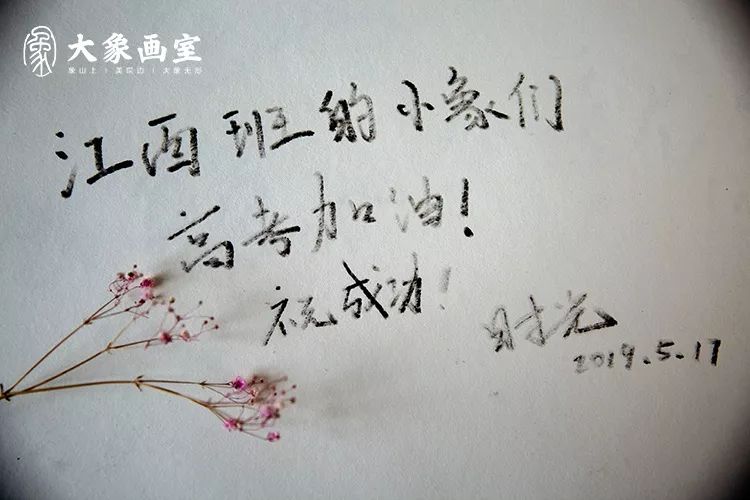 大象画室
象山上 | 美院边 | 大象无形
江西班的小象们
高考加油！
祝成功！
时光
2019.5.17